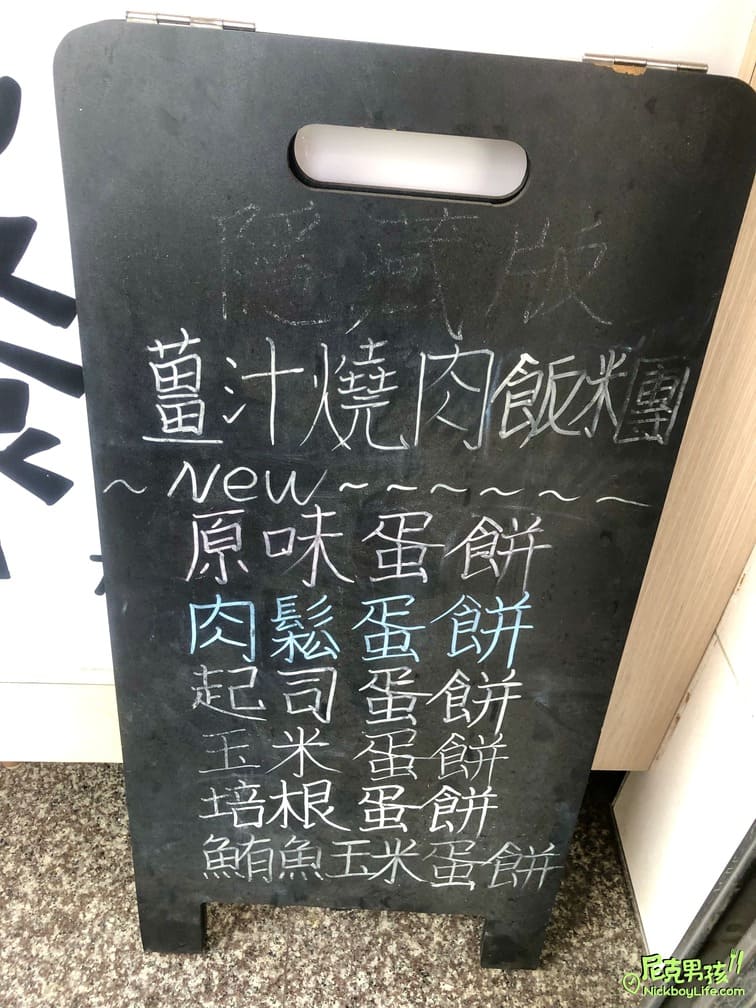 隱藏版
薑汁燒肉飯糰
~ New ~ ~ ~ ~ ~ ~
原味蛋餅
肉鬆蛋餅
起司蛋餅
玉米蛋餅
培根蛋餅
鮪魚玉米蛋餅
尼克男孩
NickboyLife.com